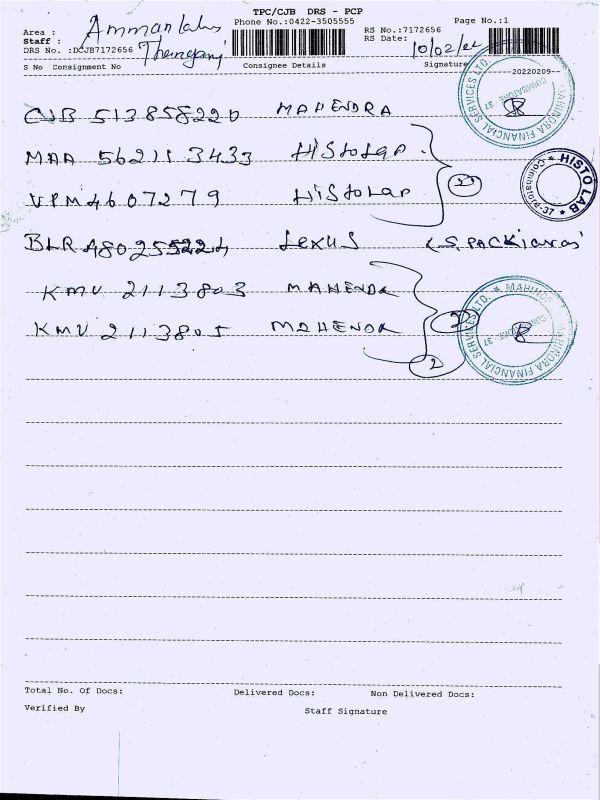 TPC/CJB DRS - PCP
Area : Ammankulam Phone No.:0422-3505555 Page No.:1
Staff : Thangam RS No.:7172656
DRS No. :DCJB7172656 RS Date: 10/02/22
S No Consignment No Consignee Details Signature 20220209
CJB 513858220 MAHENDRA
MAA 562113433 HiStoLap
VPM 4607279 HiStoLap
BLR 480255224 Lexus (S. PACKiaraj
KMU 2113803 MAHENDR
KMU 2113805 MAHENDR
2
MAHINDRA FINANCIAL SERVICES LTD. COIMBATORE 37
HISTO LAB Coimbatore-37
MAHINDRA FINANCIAL SERVICES LTD. COIMBATORE 37
Total No. Of Docs: Delivered Docs: Non Delivered Docs:
Verified By Staff Signature